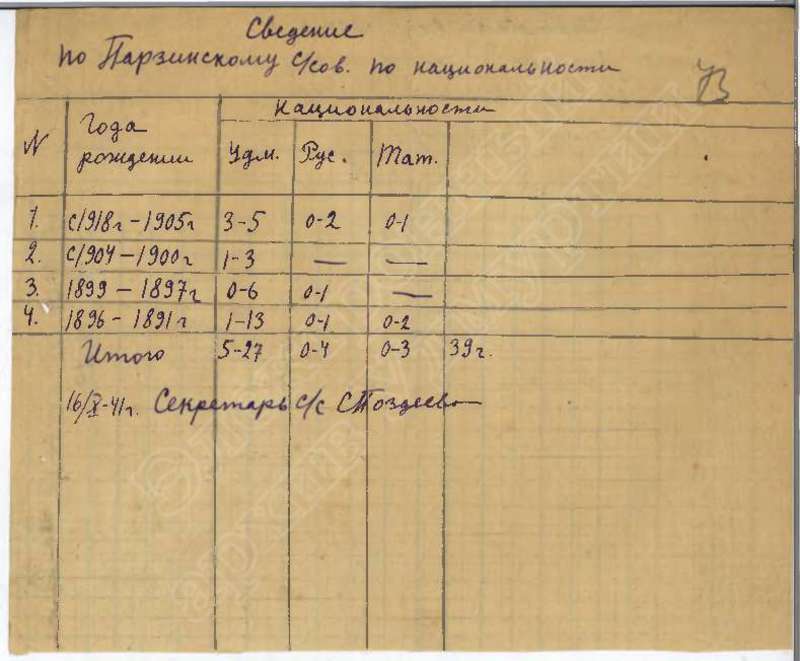 Сведение
по Парзинскому с/сов. по национальности
73
N Года рождении Национальности
Удм. Рус. Тат.
1. с/1918г – 1905г 3-5 0-2 0-1
2. с/904 – 1900г 1-3 — —
3. 1899 – 1897г 0-6 0-1 —
4. 1896 – 1891г 1-13 0-1 0-2
Итого 5-27 0-4 0-3 39г.
16/X-41г. Секретарь с/с СПоздеева